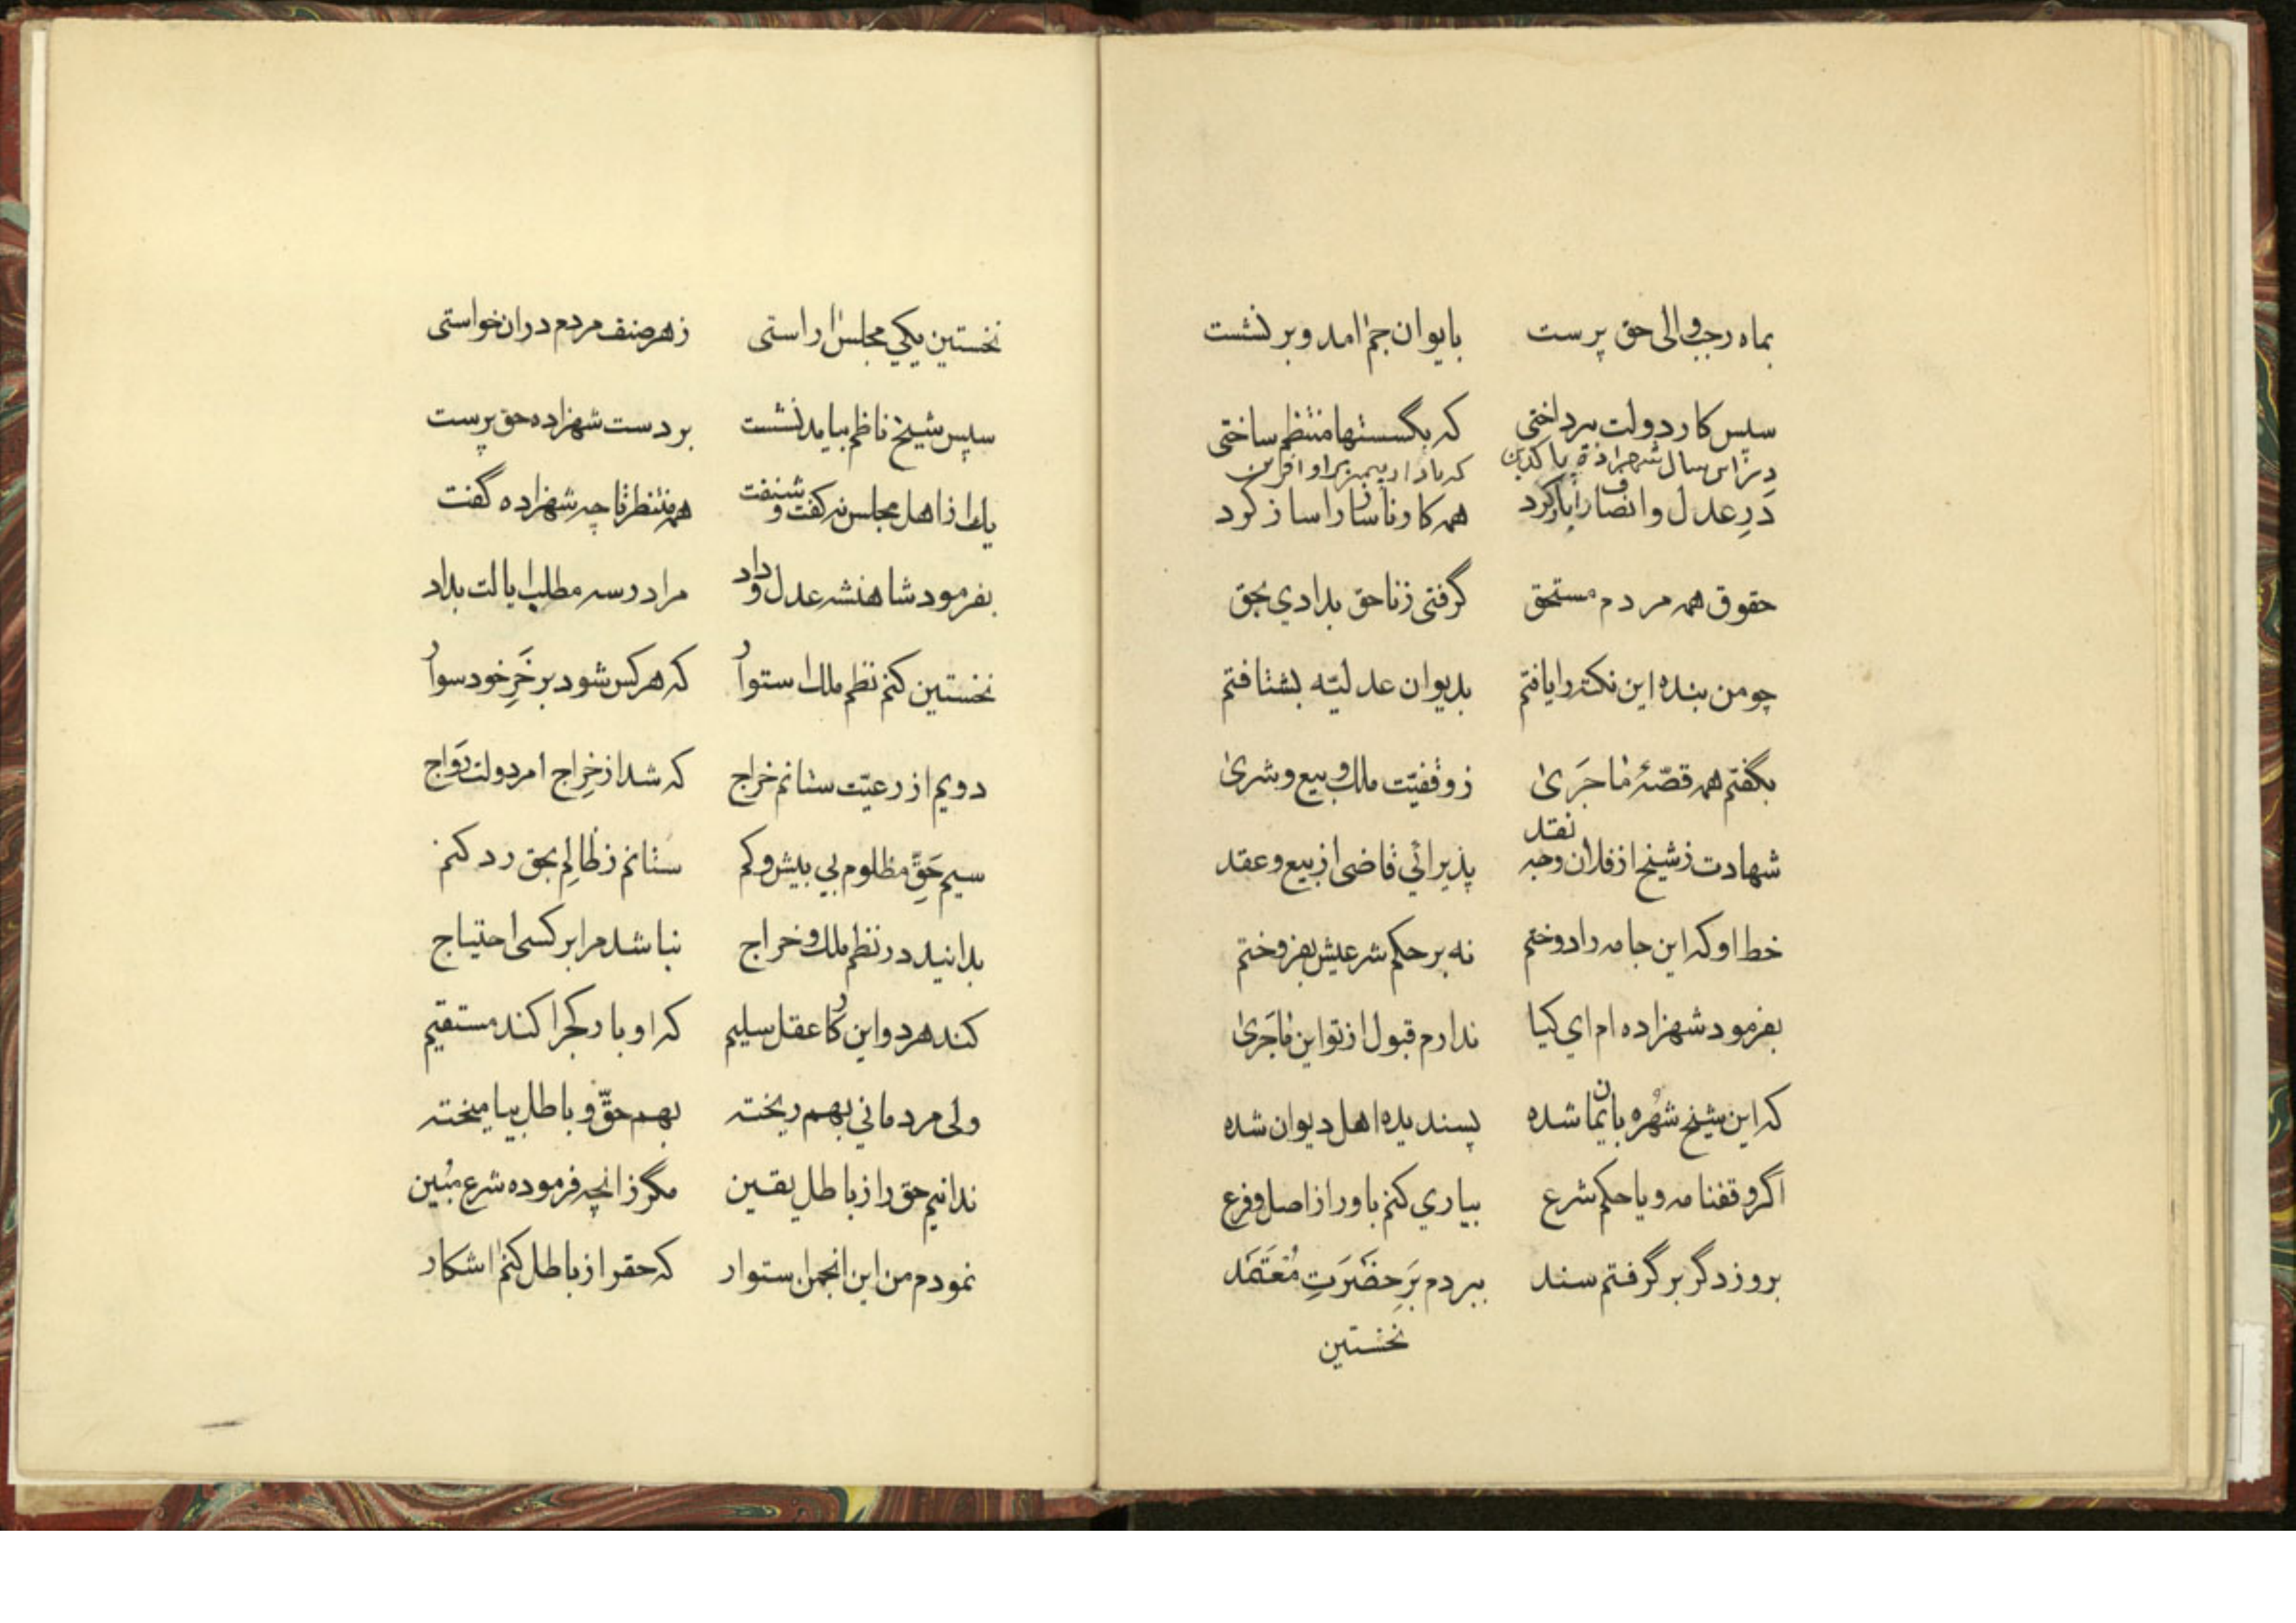 بماه رجب والی حق پرست بایوان جم امد و بر نشست
سپس کار دولت بپرداختی که بگسستها منتظم ساختی
در این سال شهزادهٔ پاکدین که بادا زیبهر او آفرین
دَرِ عدل و انصاف را باز کرد همه کار ناساز را ساز کرد
حقوق همه مردم مستحق گرفتی ز ناحق بدادی بحق
چو من بنده این نکته را یافتم بدیوان عدلیّه بشتافتم
بگفتم همه قصّهٔ ماجَری ز وقفیّت ملک و بیع و شری
شهادت ز شیخ از فلان وجه نقد پذیرائی قاضی از بیع و عقد
خط او که این جامه را دوختم نه بر حکم شرعیش بفروختم
بفرمود شهزاده ام ای کیا ندارم قبول از تو این ماجَری
که این شیخ شهره بایمان شده پسندیده اهل دیوان شده
اگر وقفنامه و یا حکم شرع بیاری کنم باور از اصل و فرع
بروز دگر بر گرفتم سند ببردم بَرِ حضَرَتِ مُعتَمَد
نخستین
نخستین یکی مجلس اراستی ز هر صنف مردم دران خواستی
سپس شیخ ناظم بیامد نشست بر دست شهزاده حق پرست
یک از اهل مجلس نه گفت و شنفت همه منتظر تا چه شهزاده گفت
بفرمود شاهنشه عدل و داد مرا در سه مطلب ایالت بداد
نخستین کنم نظم ملک استوار که هر کس شود بر خَرِ خود سوار
دویم از رعیّت ستانم خراج که شد از خِراج امر دولت رَواج
سیم حَقِّ مظلوم بی بیش و کم ستانم ز ظالِم بحق رد کنم
بدانید در نظم ملک و خراج نباشد مرا بر کسی احتیاج
کند هر دو این کار عقل سلیم که او بار کجرا کند مستقیم
ولی مردمانی بهم ریخته بهم حقّ و باطل بیامیخته
ندانیم حق را ز باطل یقین مگر زانچه فرموده شرع مُبین
نمودم من این انجمن استوار که حقرا ز باطل کنم اشکار